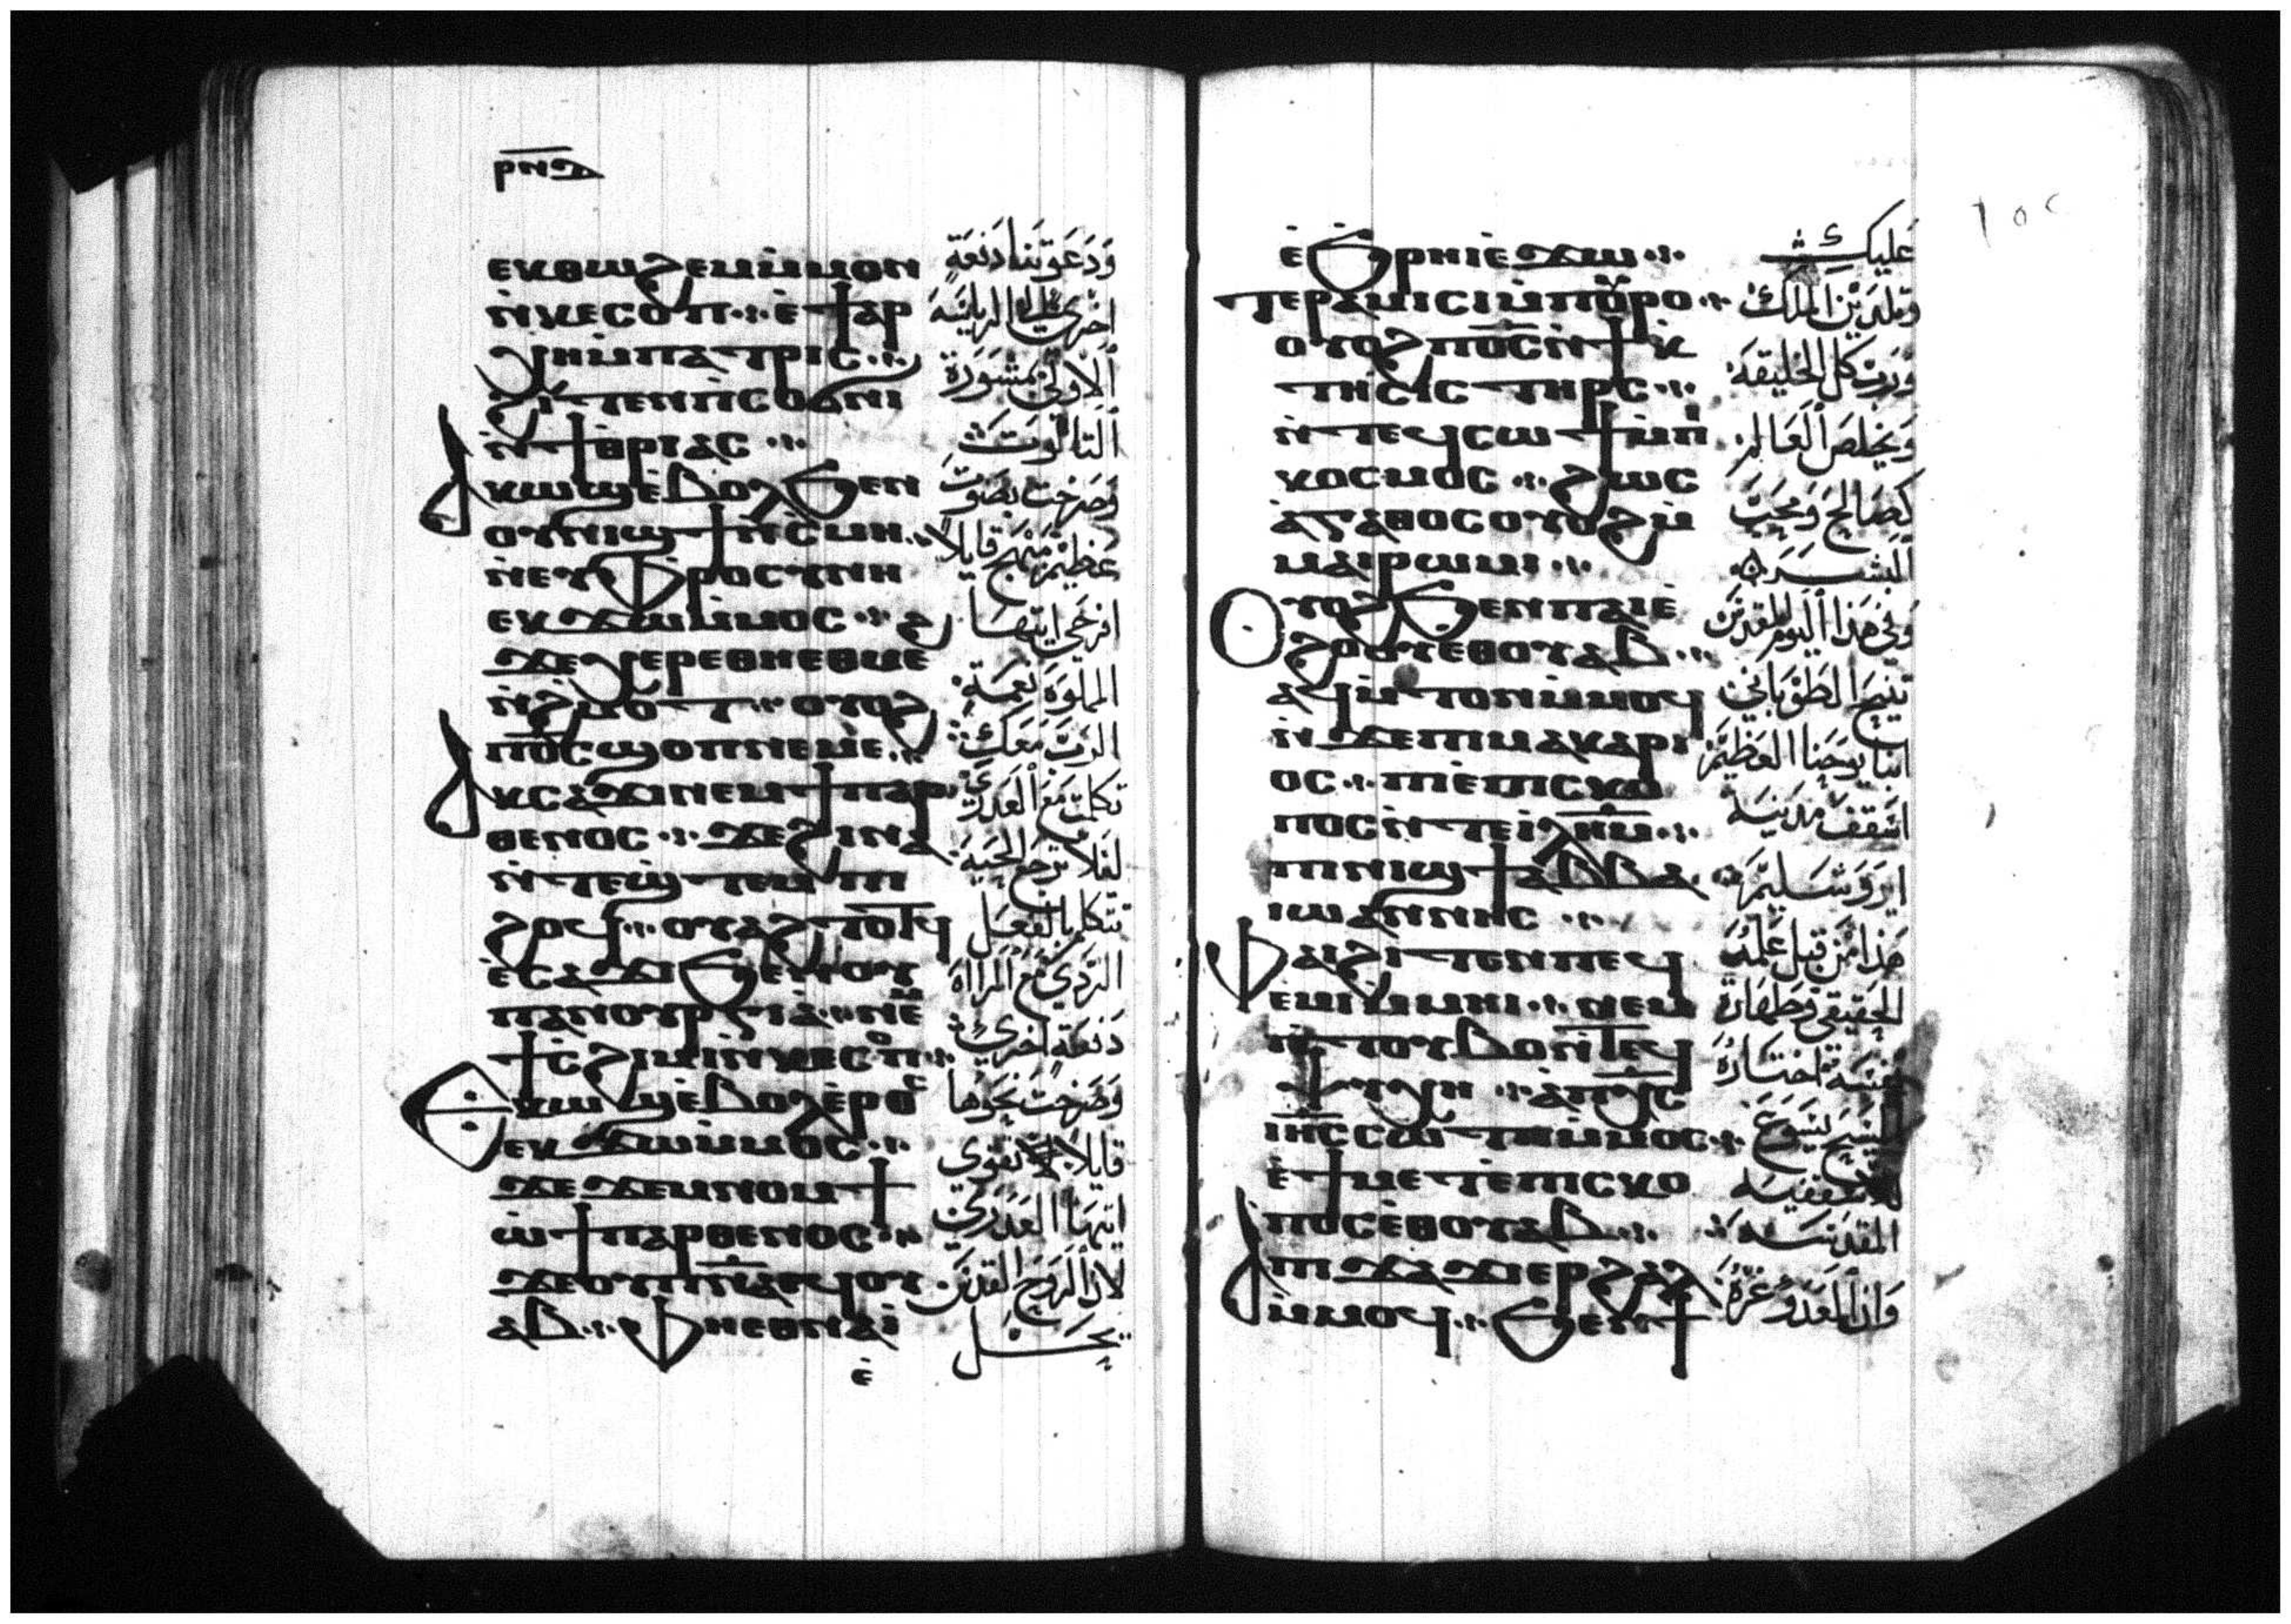 ⲣⲛⲑ
ⲉⲕⲑⲱϩⲉⲙⲙ̇ⲙⲟⲛ
ⲛ̇ⲕⲉⲥⲟⲡ ⲉ̇ϯⲁⲣ
ⲭⲏⲙ̇ⲡⲁⲧⲣⲓⲥ
ϩⲓⲧⲉⲛⲡⲓⲥⲟϭⲛⲓ
ⲛ̇ϯⲑⲣⲓⲁⲥ
ⲁⲕⲱϣⲉ̇ⲃⲟⲗϧⲉⲛ
ⲟⲩⲛⲓϣϯⲛ̇ⲥⲙⲏ
ⲛ̇ⲉⲩⲫⲣⲟⲥⲩⲛⲏ
ⲉⲕϫⲱⲙ̇ⲙⲟⲥ
ϫⲉⲭⲉⲣⲉⲑⲏⲉⲑⲙⲉ
ⲛ̇ϩⲙⲟⲧ ⲟⲩⲟϩ
ⲡⲟ̅ⲥ̅ϣⲟⲡⲛⲉⲙⲉ
ⲁⲕⲥⲁϫⲓⲛⲉⲙϯⲡⲁⲣ
ⲑⲉⲛⲟⲥ ϫⲉϩⲓⲛⲁ
ⲛ̇ⲧⲉϣⲧⲉⲙ ⲡⲓ
ϩⲟϥ ⲟⲩⲁϩⲧⲟⲧϥ
ⲉ̇ⲥⲁϫⲓϧⲉⲛⲟⲩ
ⲡⲁⲛⲟⲩⲣⲅⲓⲁ ⲛⲉⲙ
ϯⲥ̇ϩⲓⲙⲓⲛ̇ⲕⲉⲥⲟⲡ
ⲉⲕⲱϣⲉ̇ⲃⲟⲗⲉ̇ⲣⲟⲥ
ⲉⲕϫⲱⲙ̇ⲙⲟⲥ
ϫⲉϫⲉⲙⲛⲟⲙϯ
ⲱ̇ϯⲡⲁⲣⲑⲉⲛⲟⲥ
ϫⲉⲟⲩⲡⲛ̅ⲁ̅ⲉϥⲟⲩ
ⲁⲃ ⲫⲏⲉⲑⲛⲁⲓ̇
ⲉ̇
ودعوتنا دفعة
اخري الي الرياسة
الاولي بمشورة
الثالوث
وصرخت بصوت
عظيم مبهج قايلا
افرحي ايتها
الملوة نعمة
الرب معك
تكلمت مع العذري
لفلا ترجع الحية
تتكلم بالفعل
الردي مع المراه
دفعة اخري
وصرخت نحوها
قايلا تقوي
ايتها العذري
لان الروح القدس
يحل
ⲉ̇ϧⲣⲏⲓⲉ̇ϫⲱ
ⲧⲉⲣⲁⲙⲓⲥⲓⲙ̇ⲡⲟⲩⲣⲟ
ⲟⲩⲟϩⲡⲟ̅ⲥ̅ⲛ̇ϯⲕ
ⲧⲏⲥⲓⲥ ⲧⲏⲣⲥ
ⲛ̇ⲧⲉϥⲥⲱϯⲙ̇ⲡⲓ
ⲕⲟⲥⲙⲟⲥ ϩⲱⲥ
ⲁ̇ⲅⲁⲑⲟⲥⲟⲩⲟϩⲙ
ⲙⲁⲓⲣⲱⲙⲓ
ⲟⲩⲟϩϧⲉⲛⲡⲁⲓⲉ̇
ϩⲟⲟⲩⲉⲑⲟⲩⲁⲃ
ⲁϥⲙ̇ⲧⲟⲛⲙ̇ⲙⲟϥ
ⲛ̇ϫⲉⲡⲓⲙⲁⲕⲁⲣⲓ
ⲟⲥ ⲡⲓⲉ̇ⲡⲓⲥⲕⲟ
ⲡⲟⲥⲛ̇ⲧⲉⲓ̅ⲗ̅ⲏ̅ⲙ̅
ⲡⲓⲛⲓϣϯⲁⲃⲃⲁ
ⲓⲱⲁⲛⲛⲏⲥ
ⲫⲁⲓϩⲓⲧⲉⲛⲡⲉϥ
ⲉⲙⲓⲙ̇ⲙⲏⲓ ⲛⲉⲙ
ⲛ̇ⲧⲟⲩⲃⲟⲛ̇ⲧⲉϥ
ⲯⲩⲭⲏ ⲁ̇ⲡⲭ̅ⲥ̅
ⲓⲏ̅ⲥ̅ⲥⲱⲧⲡⲙ̇ⲙⲟϥ
ⲉ̇ϯⲙⲉⲧⲉ̇ⲡⲓⲥⲕⲟ
ⲡⲟⲥⲉⲑⲟⲩⲁⲃ
ⲁⲡⲓϫⲁϫⲓⲉⲣϩⲁⲗ
ⲙ̇ⲙⲟϥ ϧⲉⲛϯ
عليك
وتلدين الملك
ورب كل الخليقة
ويخلص العالم
كصالح ومحب
البشر
وفي هذا اليوم المقدس
تنيح الطوباني
انبا يوحنا العظيم
اسقف مدينة
ايروشليم
هذا من قبل علمه
الحقيقي وطهارة
نفسه اختاره
المسيح يسوع
للاسقفية
المقدسة
وان العدو غره